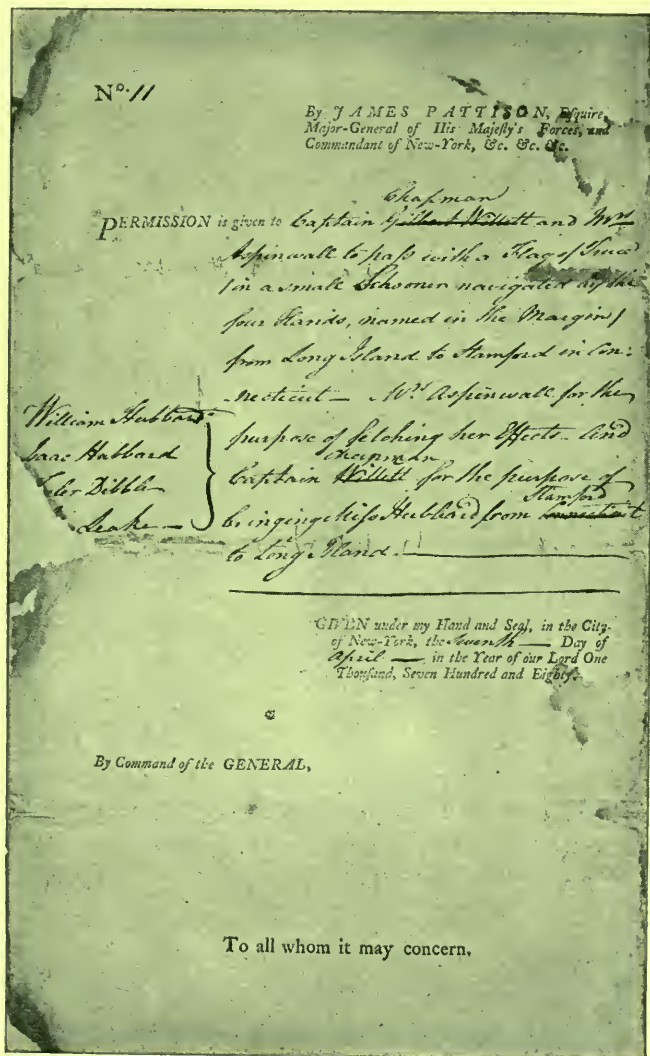 No. 11
By JAMES PATTISON, Esquire,
Major-General of His Majesty's Forces, and
Commandant of New-York, &c. &c. &c.
Chapman
PERMISSION is given to Captain Gilbert Willett and Mrs
Aspinwall to pass with a Flag of Truce
(in a small Schooner navigated by the
four Hands, named in the Margin)
from Long Island to Stamford in Con:
necticut — Mrs Aspinwall for the
purpose of fetching her Effects — And
Chapman
Captain Willett for the purpose of
Stamford
bringing Miss Hubbard from Connecticut
to Long Island.
William Hubbard
Isaac Hubbard
Dibble
Leake —
GIVEN under my Hand and Seal, in the City
of New-York, the — Day of
April — in the Year of our Lord One
Thousand, Seven Hundred and Eighty.
By Command of the GENERAL,
To all whom it may concern.